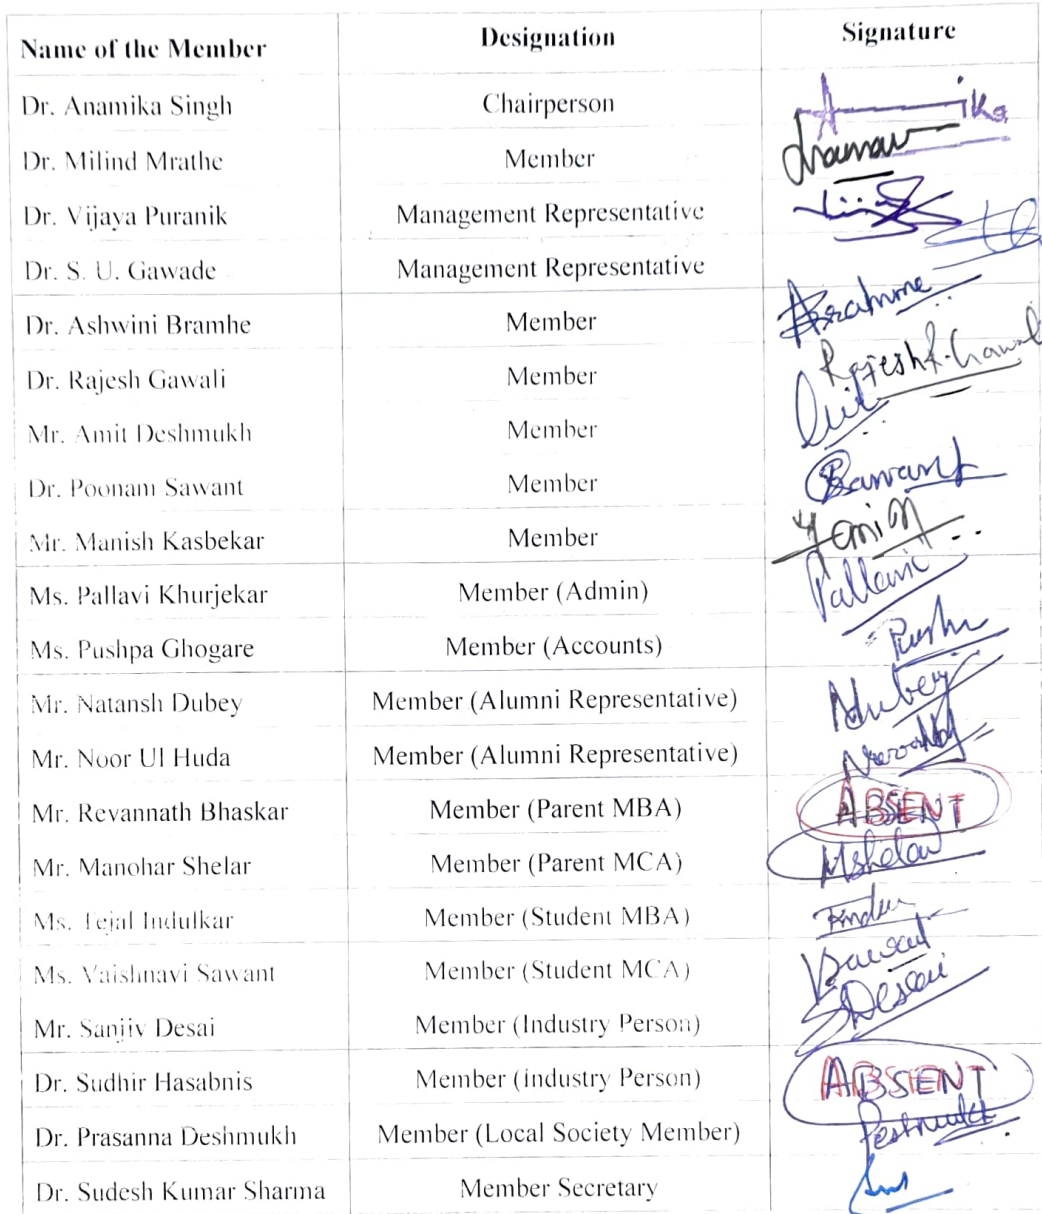 Name of the Member Designation Signature
Dr. Anamika Singh Chairperson A ika
Dr. Milind Mrathe Member
Dr. Vijaya Puranik Management Representative
Dr. S. U. Gawade Management Representative
Dr. Ashwini Bramhe Member
Dr. Rajesh Gawali Member Rajesh R. Gawali
Mr. Amit Deshmukh Member
Dr. Poonam Sawant Member PSawant
Mr. Manish Kasbekar Member
Ms. Pallavi Khurjekar Member (Admin) Pallavi
Ms. Pushpa Ghogare Member (Accounts)
Mr. Natansh Dubey Member (Alumni Representative) NDubey
Mr. Noor Ul Huda Member (Alumni Representative)
Mr. Revannath Bhaskar Member (Parent MBA) ABSENT
Mr. Manohar Shelar Member (Parent MCA) MShelar
Ms. Tejal Indulkar Member (Student MBA)
Ms. Vaishnavi Sawant Member (Student MCA)
Mr. Sanjiv Desai Member (Industry Person) SDesai
Dr. Sudhir Hasabnis Member (industry Person) ABSENT
Dr. Prasanna Deshmukh Member (Local Society Member)
Dr. Sudesh Kumar Sharma Member Secretary